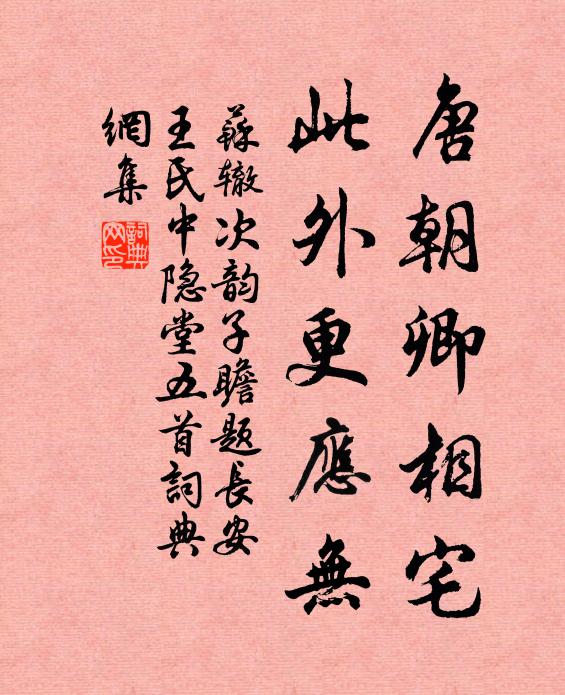 唐朝卿相宅
此外更應無
蘇辙次韵子瞻题長安
王氏中隐堂五首詞典
網集
詞典
网印